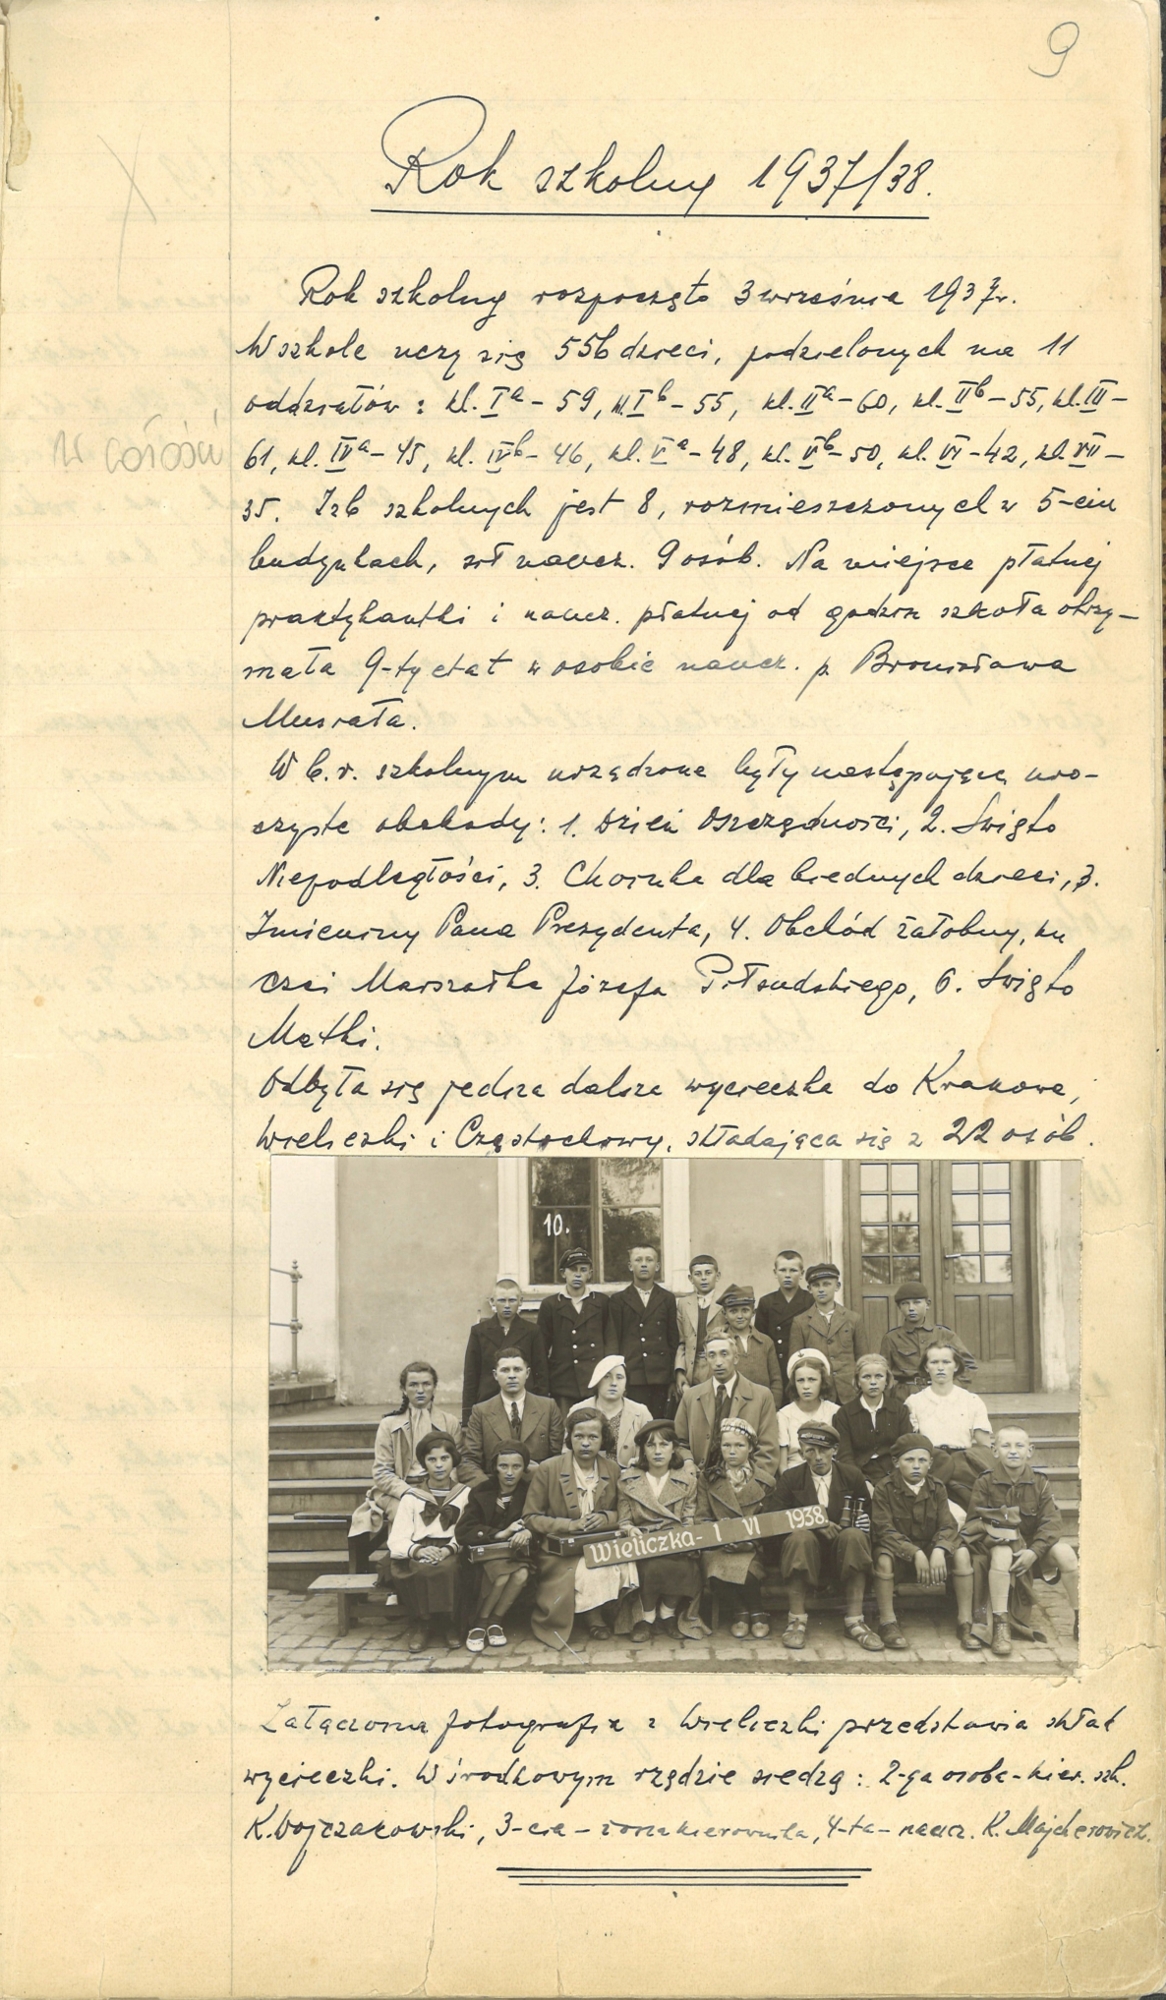 9
Rok szkolny 1937/38.
Rok szkolny rozpoczęto 3 września 1937r.
W szkole uczy się 556 dzieci, podzielonych na 11
oddziałów: kl. Iᵃ - 59, kl. Iᵇ - 55, kl. IIᵃ - 60, kl. IIᵇ - 55, kl. III -
61, kl. IVᵃ - 45, kl. IVᵇ - 46, kl. Vᵃ - 48, kl. Vᵇ - 50, kl. VI - 42, kl. VII -
w całości
35. Izb szkolnych jest 8, rozmieszczonych w 5-ciu
budynkach, sił naucz. 9 osób. Na miejsce płatnej
praktykantki i naucz. płatnej od godzin szkoła otrzy-
mała 9-ty etat w osobie naucz. p. Bronisława
Musiała.
W b. r. szkolnym urządzone były następujące uro-
czyste obchody: 1. Dzień Oszczędności, 2. Święto
Niepodległości, 3. Choinka dla biednych dzieci, 3.
Imieniny Pana Prezydenta, 4. Obchód żałobny, ku
czci Marszałka Józefa Piłsudskiego, 6. Święto
Matki.
Odbyła się jedna dalsza wycieczka do Krakowa,
Wieliczki i Częstochowy, składająca się z 22 osób.
10.
Wieliczka - 1 VI 1938.
Załączona fotografia z Wieliczki przedstawia skład
wycieczki. W środkowym rzędzie siedzą: 2-ga osoba - kier. szk.
K. Wojczakowski, 3-cia - żona kierownika, 4-ta - naucz. K. Majcherowicz.